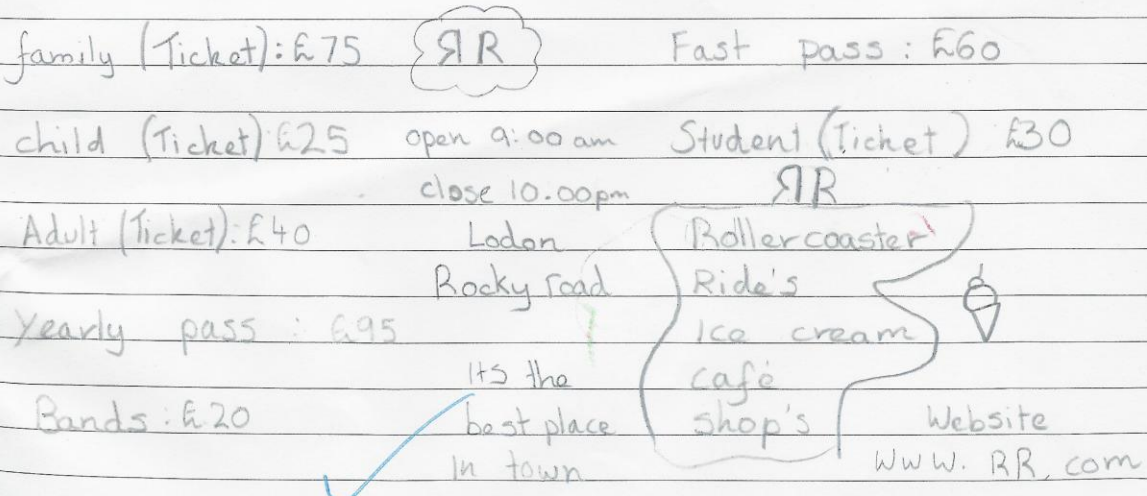 family (Ticket): £75
child (Ticket): £25
Adult (Ticket): £40
Yearly pass : £95
Bands : £20
ЯR
open 9:00 am
close 10.00pm
Lodon
Rocky road
Its the
best place
In town
Fast pass : £60
Student (Ticket) £30
ЯR
Rollercoaster
Ride's
Ice cream
café
shop's
Website
WWW. RR. com